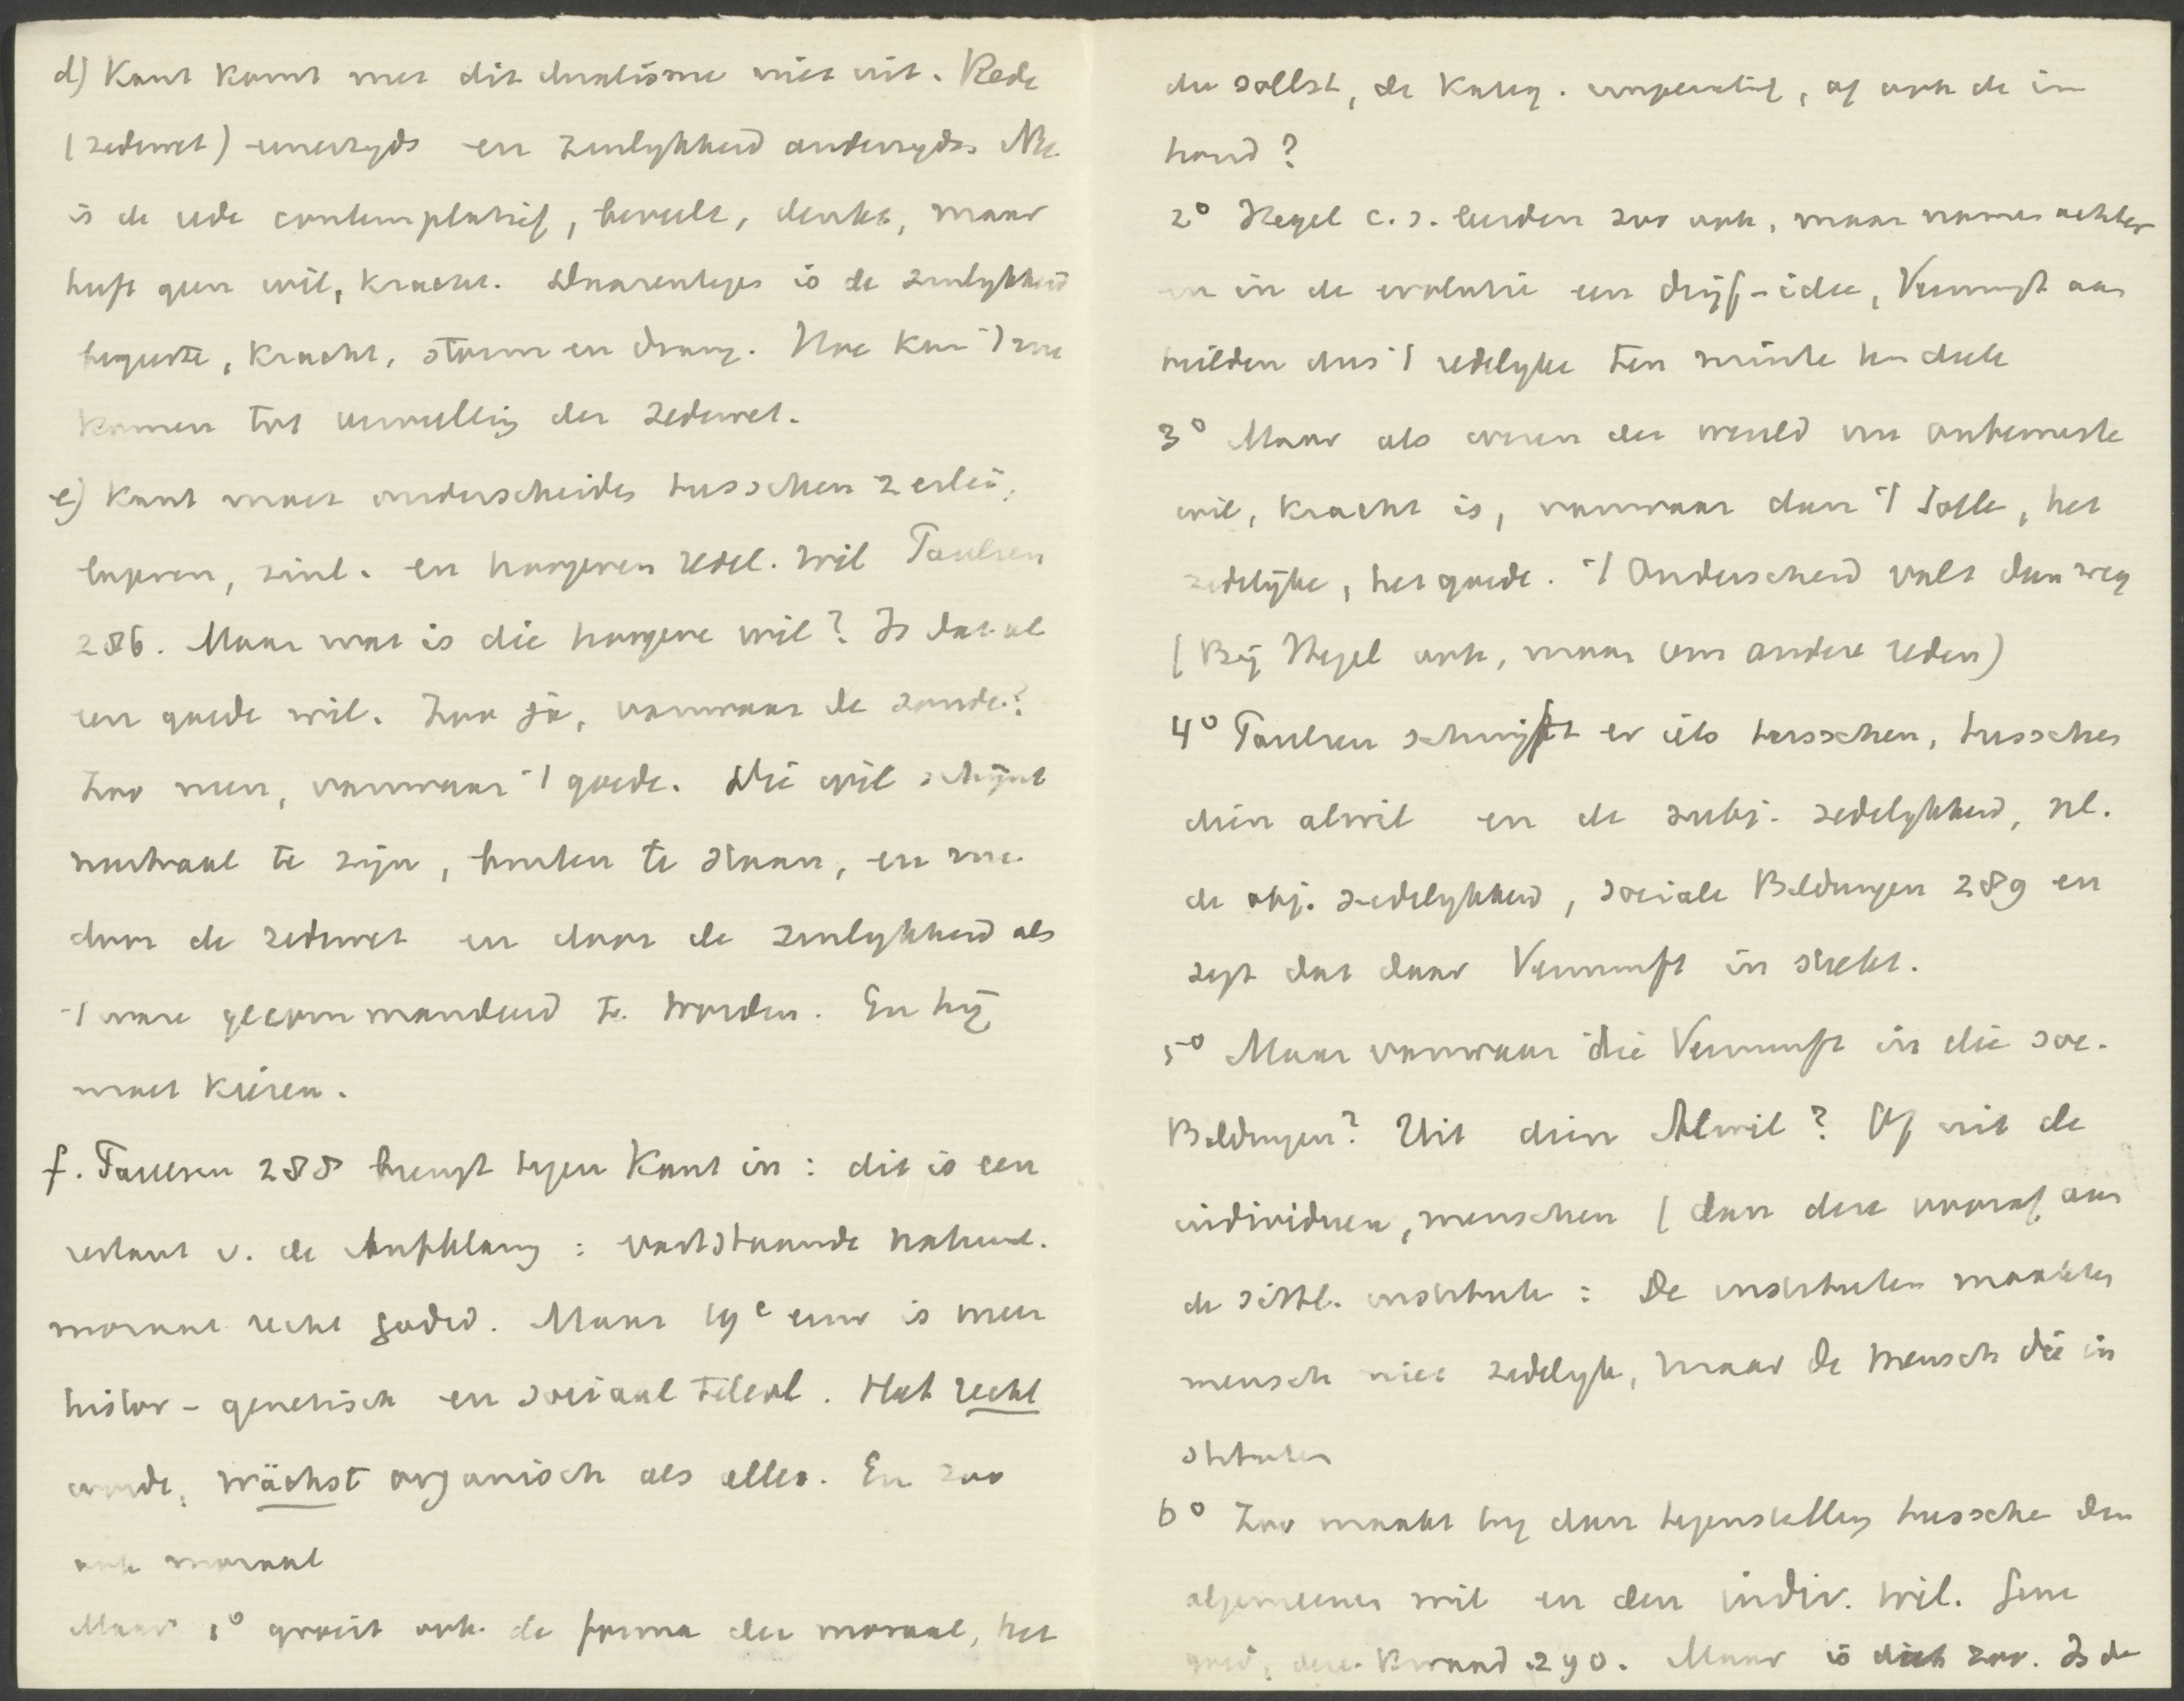 d) Kant komt met dit dualisme niet uit. Rede
(zedewet) eenerzyds en zinlykheid anderzyds. Nu
is de rede contemplatief, beveelt, denkt, maar
heeft geen wil, kracht. Daarentegen is de zinlykheid
begeerte, kracht, storm en drang. Hoe kan 't zoo
komen tot vervulling der zedewet.
e) Kant moet onderscheiden tusschen 2 erlei,
lageren, zinl. en hoogeren redel. wil Paulsen
286. Maar wat is die hoogere wil? Is dat al
een goede wil. Zoo ja, vanwaar de zonde?
Zoo neen, vanwaar 't goede. Die wil schijnt
neutraal te zijn, buiten te staan, en nu
door de zedewet en door de zinlykheid als
't ware gecommandeerd te worden. En hij
moet kiezen.
f. Paulsen 288 brengt tegen Kant in: dit is een
restant v. de Aufklärung: vaststaande natuur.
moraal recht godsd. Maar 19e eeuw is meer
histor - genetisch en sociaal teleol. Het recht
wurde, wächst organisch als alles. En zoo
ook moraal
Maar 1° groeit ook de forma der moraal, het
du sollst, de kateg. imperatief, of ook de in
houd?
2° Hegel c.s. leerden zoo ook, maar namen achter
en in de evolutie een drijf-idee, Vernunft aan
hielden dus 't redelyke ten minste ten deele
3° Maar als wezen der wereld een onbewuste
wil, kracht is, vanwaar dan 't Solle, het
zedelijke, het goede. 't Onderscheid valt dan weg
(Bij Hegel ook, maar om andere reden)
4° Paulsen schuift er iets tusschen, tusschen
dien alwil en de subj. zedelykheid, nl.
de obj. zedelykheid, sociale Bildungen 289 en
zegt dat daar Vernunft in steekt.
5° Maar vanwaar die Vernunft in die soc.
Bildungen? Uit dien Alwil? Of uit de
individuen, menschen (dan deze vooraf aan
de sittl. institute: De instituten maakten
mensch niet zedelyk, maar de mensch die in
stituten
6° Zoo maakt hij dan tegenstelling tussche den
algemeenen wil en den indiv. wil. Gene
goed, deze kwaad 290. Maar is dit zoo. Is de